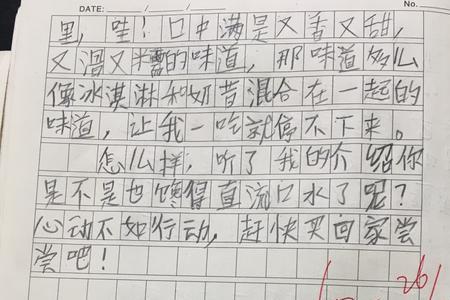 DATE: / / No.
里，哇！口中满是又香又甜，
又滑又糯的味道，那味道多么
像冰淇淋和奶昔混合在一起的
味道，让我一吃就停不下来。
怎么样，听了我的介绍你
是不是也馋得直流口水了呢？
心动不如行动，赶快买回家尝
尝吧！